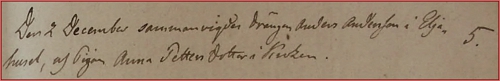 Den 2 December sammanvigdes Drängen Anders Andersson i Elja-
huset, och Pigan Anna Petters dotter i Kyrkan. 5.